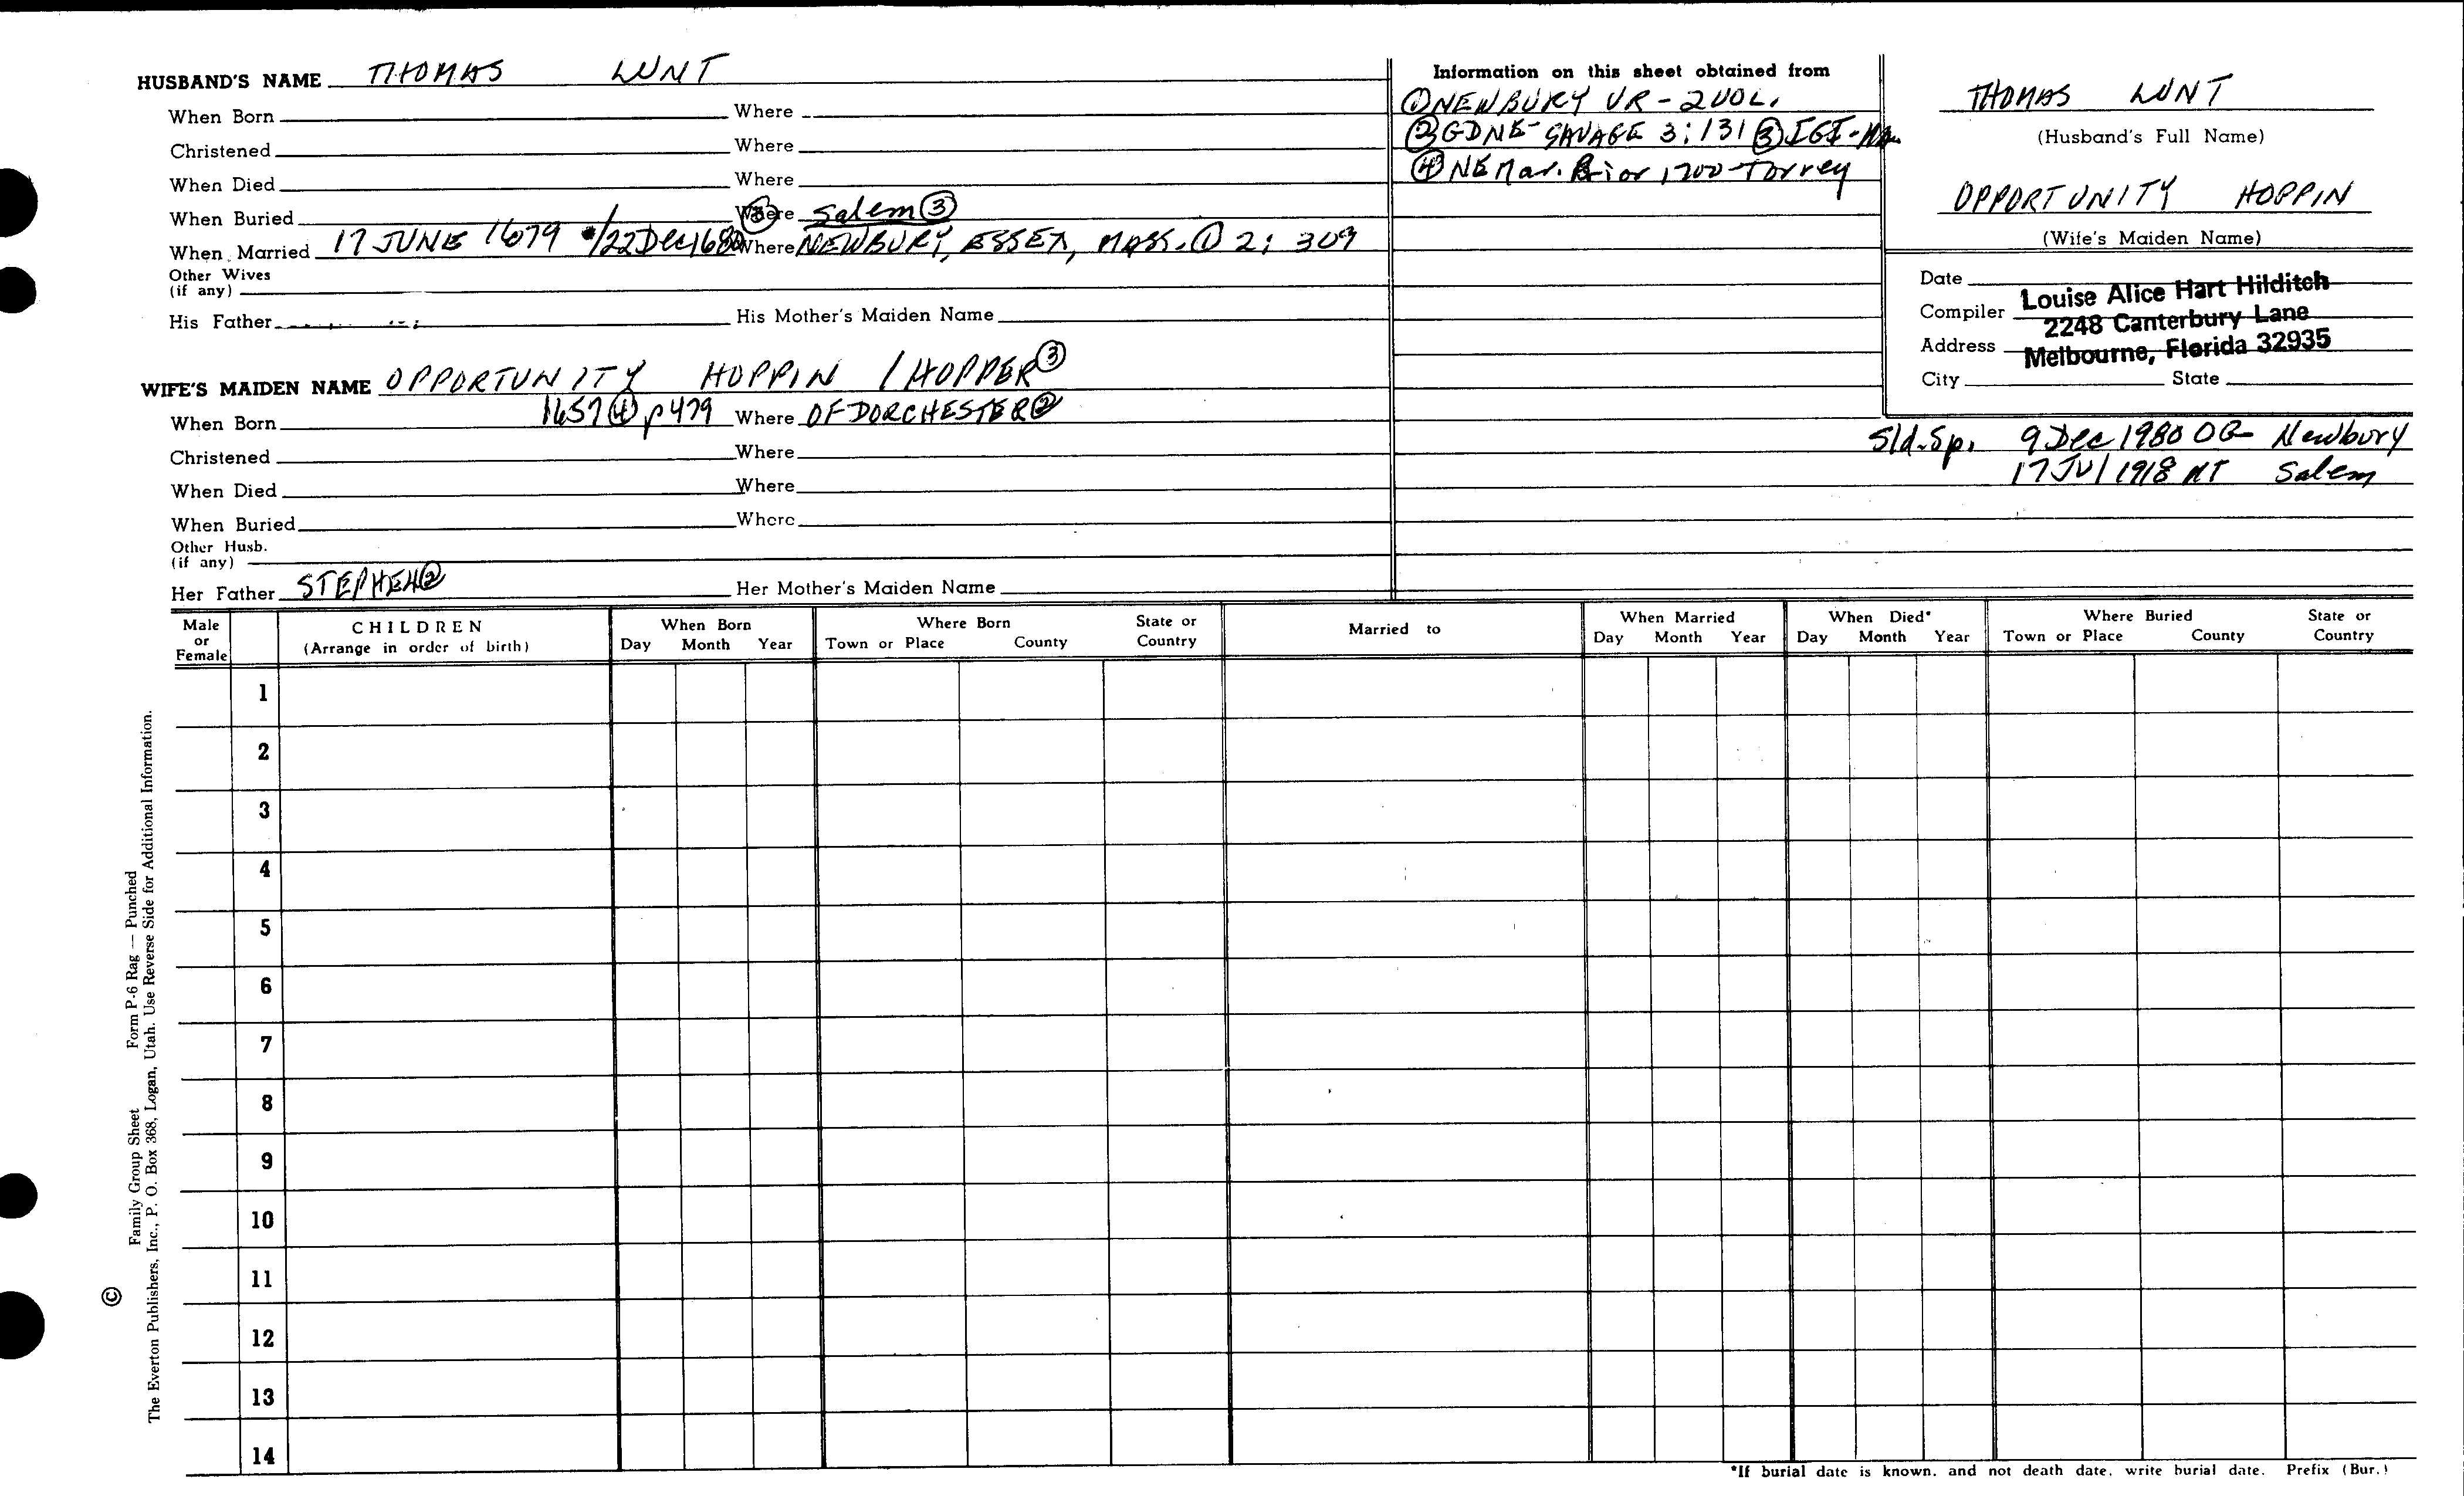 HUSBAND'S NAME THOMAS LUNT
When Born Where
Christened Where
When Died Where
When Buried Where Salem ③
When Married 17 JUNE 1679 /22 Dec 1680 ③ Where NEWBURY, ESSEX, MASS. ① 2: 309
Other Wives
(if any)
His Father His Mother's Maiden Name
WIFE'S MAIDEN NAME OPPORTUNITY HOPPIN / HOPPER ③
When Born 1657 ④ p479 Where OF DORCHESTER ②
Christened Where
When Died Where
When Buried Where
Other Husb.
(if any)
Her Father STEPHEN ② Her Mother's Maiden Name
Information on this sheet obtained from
① NEWBURY VR - 2 VOL.
② GDNE - SAVAGE 3:131 ③ IGI - MA.
④ NE Mar. Prior 1700 - Torrey
THOMAS LUNT
(Husband's Full Name)
OPPORTUNITY HOPPIN
(Wife's Maiden Name)
Date
Compiler Louise Alice Hart Hilditch
2248 Canterbury Lane
Address Melbourne, Florida 32935
City State
Sld. Sp. 9 Dec 1980 OG Newbury
17 JUl 1918 MT Salem
Male or Female
CHILDREN
(Arrange in order of birth)
When Born
Day Month Year
Where Born
Town or Place County State or Country
Married to
When Married
Day Month Year
When Died*
Day Month Year
Where Buried
Town or Place County State or Country
1
2
3
4
5
6
7
8
9
10
11
12
13
14
*If burial date is known, and not death date, write burial date. Prefix (Bur.)
© Family Group Sheet Form P-6 Rag — Punched
The Everton Publishers, Inc., P. O. Box 368, Logan, Utah. Use Reverse Side for Additional Information.